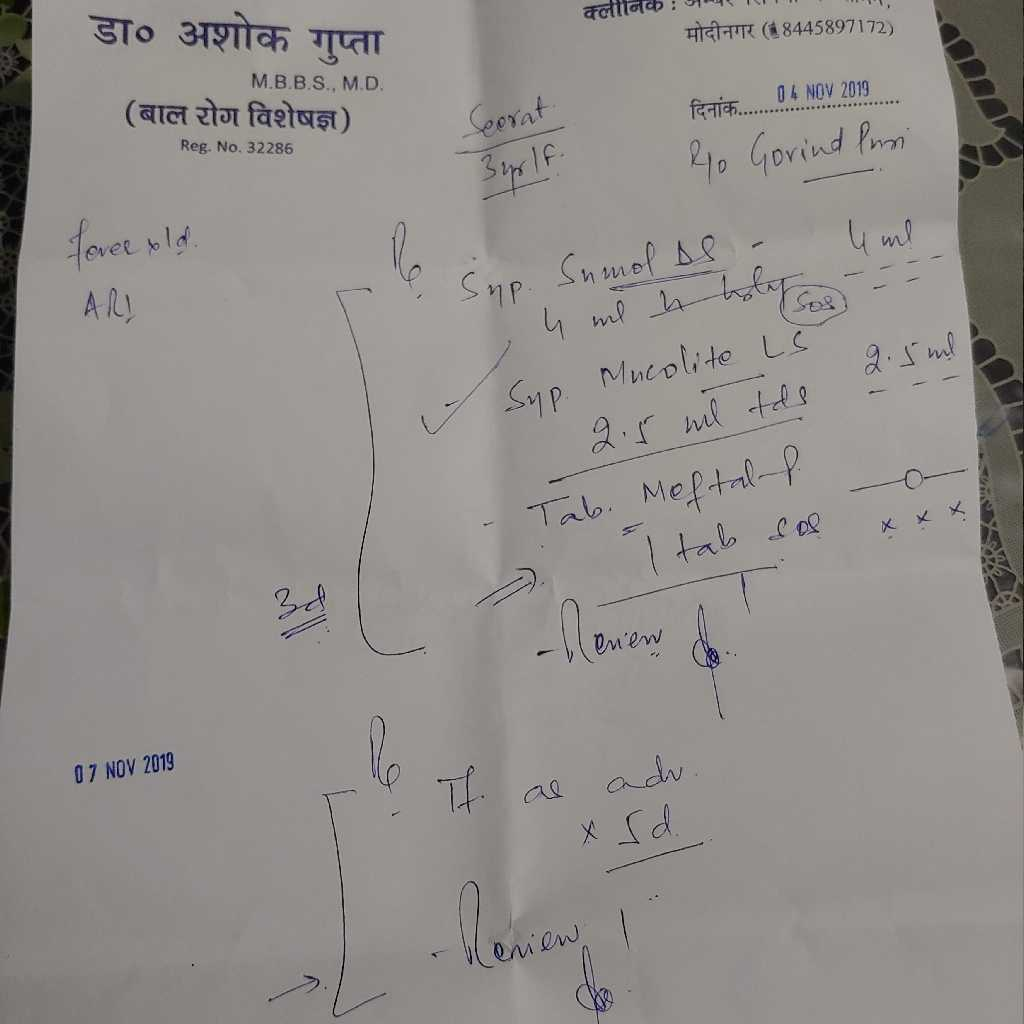 डा० अशोक गुप्ता
M.B.B.S., M.D.
(बाल रोग विशेषज्ञ)
Reg. No. 32286
क्लीनिक :
मोदीनगर (8445897172)
दिनांक.......... 04 NOV 2019
Seerat
3yr/F.
R/o Govind Puri
fever x 1d.
ARI
Rx
Syp. Sumol DS - 4 ml
4 ml SOS
Syp. Mucolite LS 2.5 ml
2.5 ml tds
- Tab. Meftal-P.
1 tab SOS x x x
3d
- Review
07 NOV 2019
Rx
Tt. as adv.
x 5d.
- Review